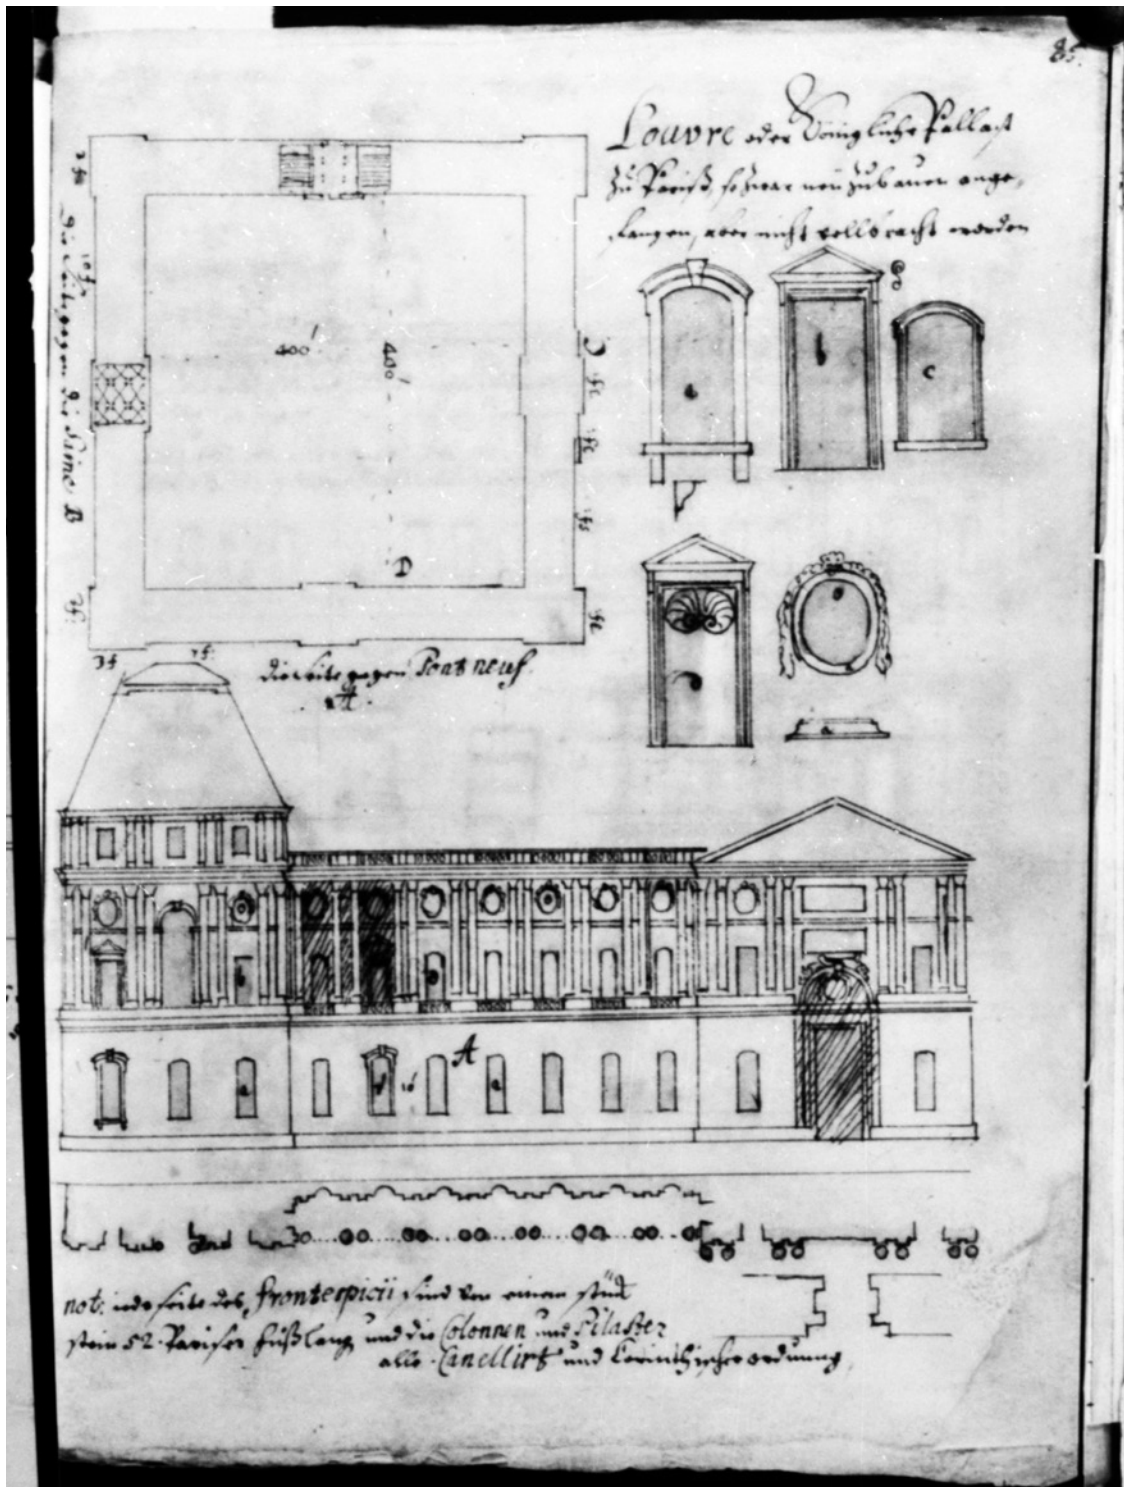 85.
Louvre oder Königliche Pallast
zu Pariß, so zwar neu zubauen ange-
fangen, aber nicht vollbracht worden
400'
400'
a
b
c
D
die seite gegen die Seine B
die seite gegen Pont neuf
A
g
a
b
A
a
not: iede seite des fronterpicii sind von einem stück
stein 52 Pariser fuß lang und die Colonnen und Pilaster
alle Canellirt und Corinthischer ordnung